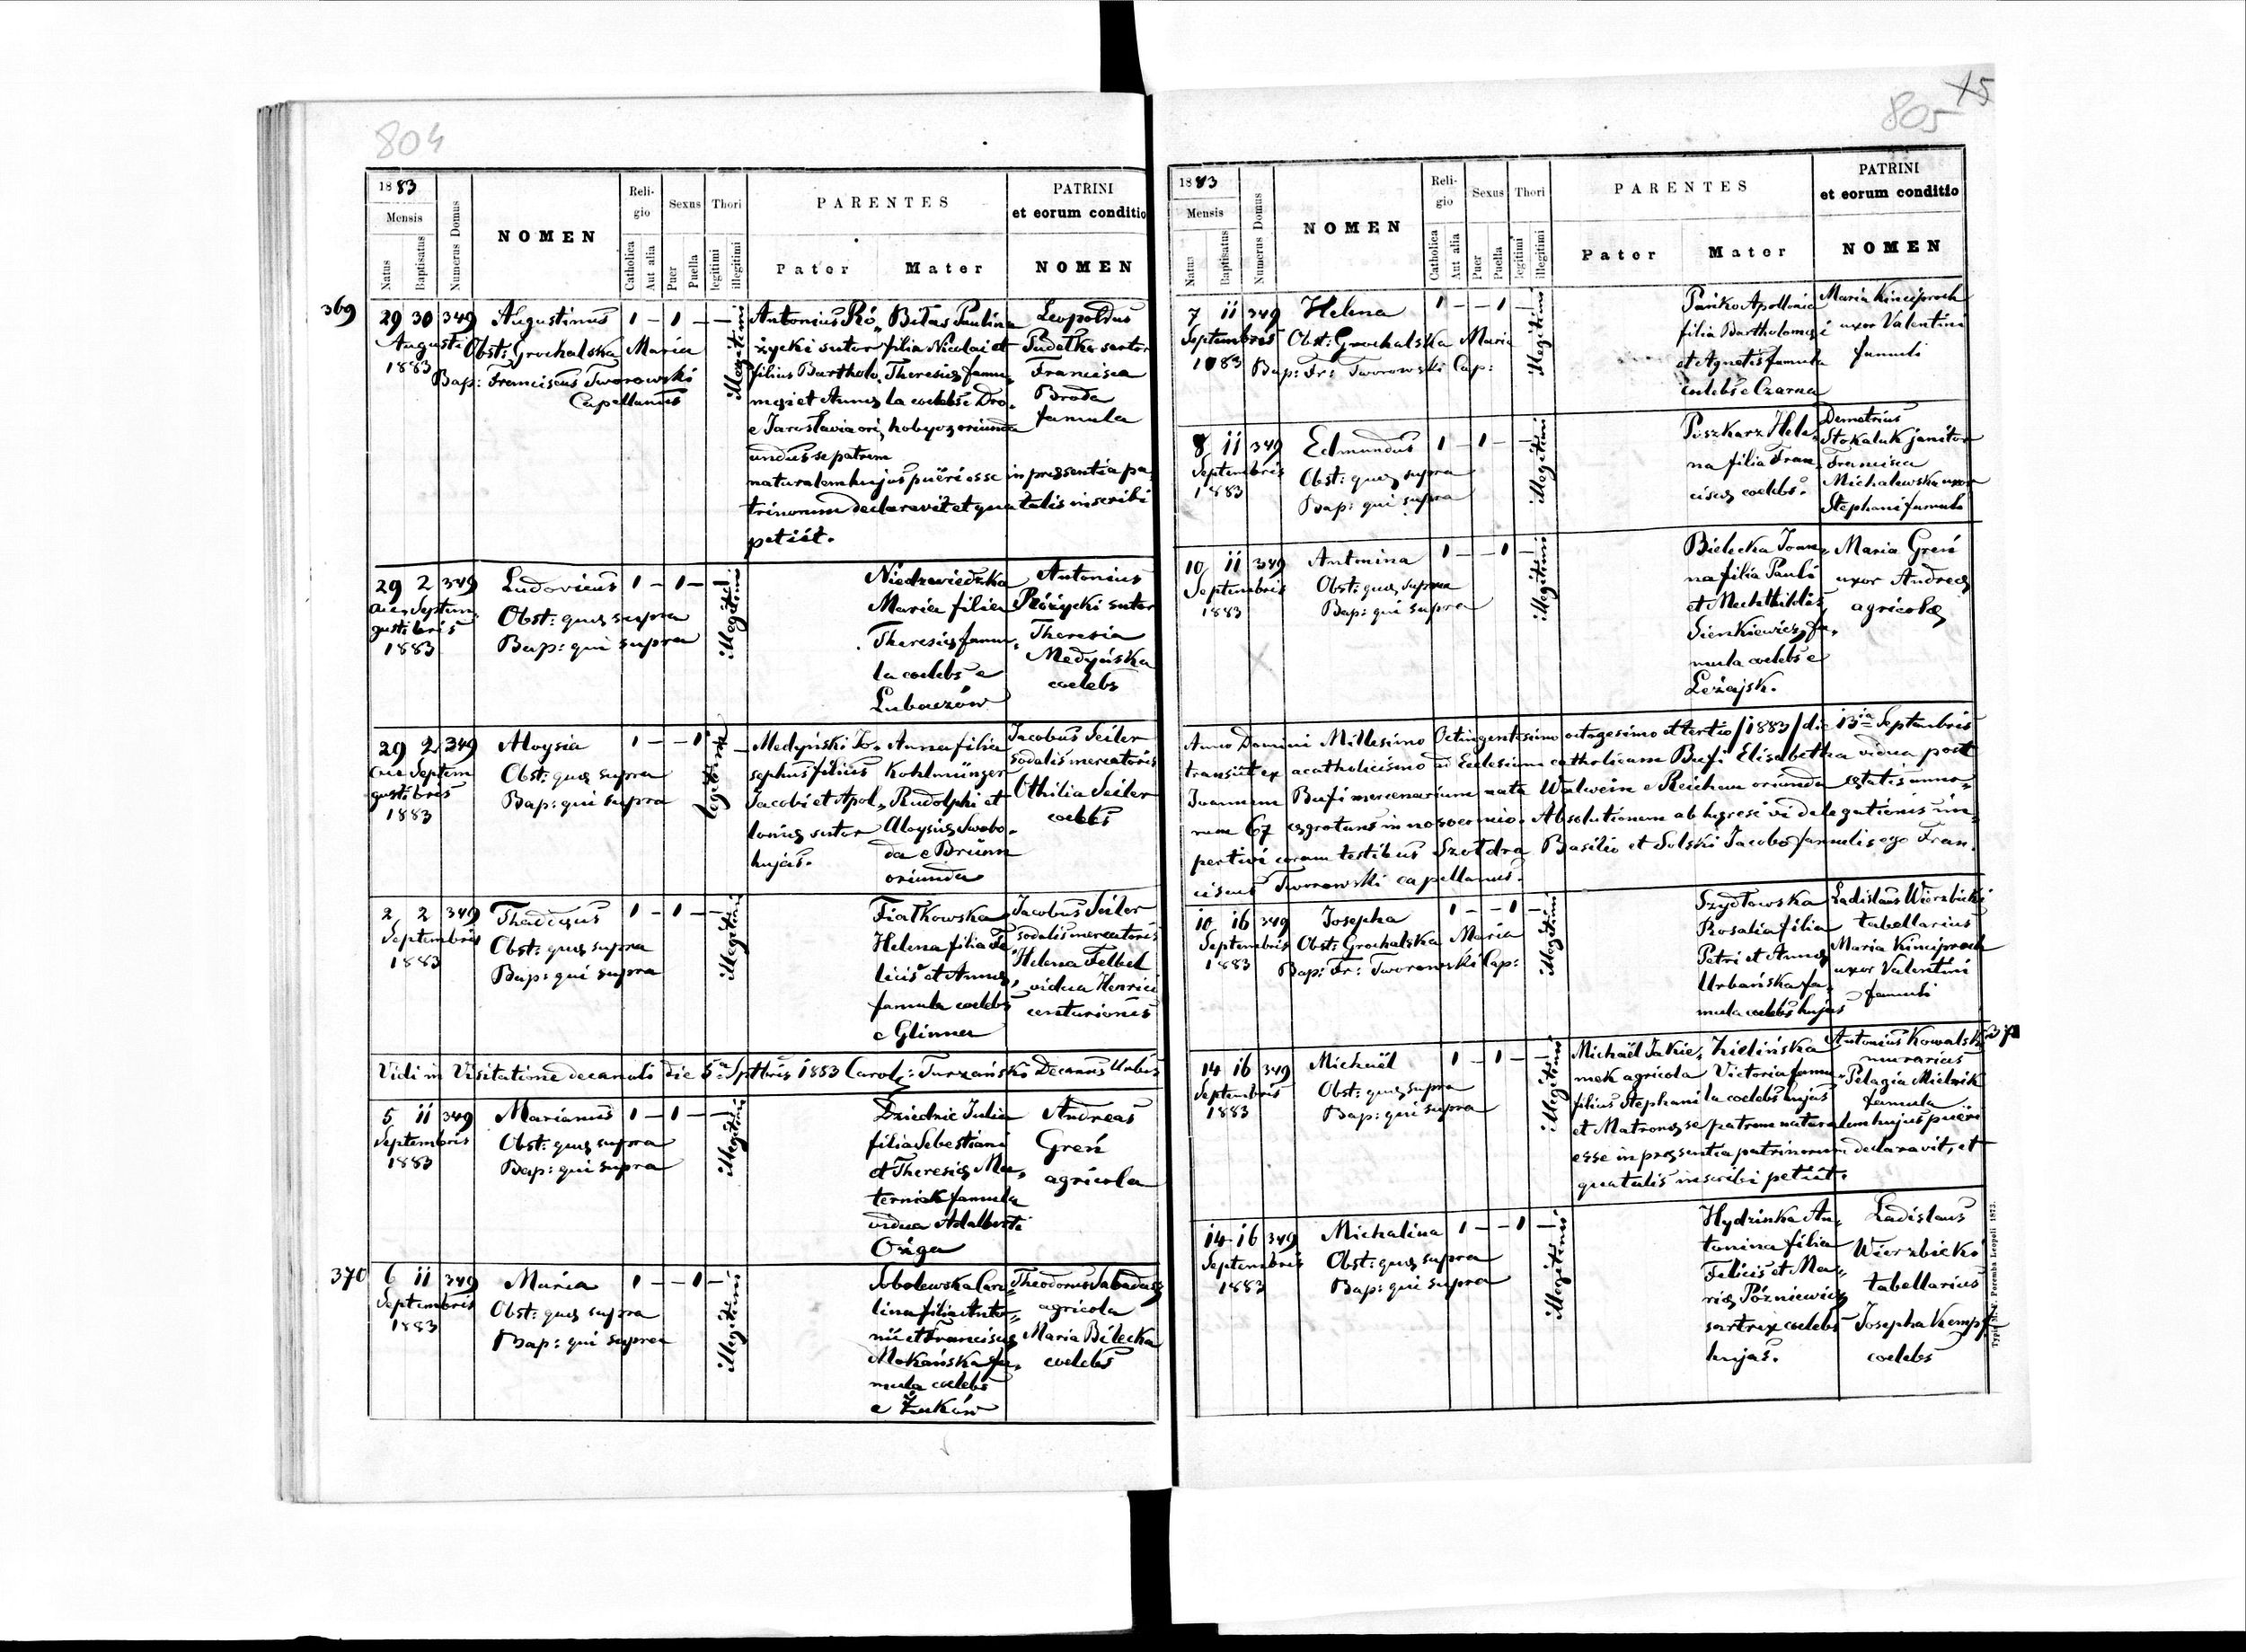 804
1883
Mensis
Natus
Baptisatus
Numerus Domus
NOMEN
Religio
Catholica
Aut alia
Sexus
Puer
Puella
Thori
legitimi
illegitimi
PARENTES
Pater
Mater
PATRINI
et eorum conditio
NOMEN
369
29 30 349 Augustinus 1 – 1 – –
Augusti Obst: Grochalska Maria
1883 Bap: Franciscus Tworowski
Capellanus
illegitimi
Antonius Ró„
życki sutor
filius Bartholo„
mæi et Annæ
e Jaroslavia ori„
undus se patrem
Bilas Paulina
filia Nicolai et
Theresiæ famu„
la coelebs e Dro„
hobycz oriunda
naturalem hujus pueri esse in præsentia pa„
trinorum declaravit et qua talis inscribi
petiit.
Leopoldus
Pudełko sartor
Francisca
Broda
famula
29 2 349 Ludovicus 1 – 1 – –
Au„ Septem„
gusti bris
1883
Obst: quæ supra
Bap: qui supra
illegitimi
Niedzwiedzka
Maria filia
Theresiæ famu„
la coelebs e
Lubaczów
Antonius
Różycki sutor
Theresia
Medyńska
coelebs
29 2 349 Aloysia 1 – – 1
Au„ Septem
gusti bris
1883
Obst: quæ supra
Bap: qui supra
Medyński Jo„
sephus filius
Jacobi et Apol„
loniæ sutor
hujas.
Anna filia
Kohlmünzer
Rudolphi et
Aloysiæ Swobo„
da e Brünn
oriunda
Jacobus Seiler
sodalis mercatoris
Othilia Seiler
coelebs
2 2 349 Thadæus 1 – 1 – –
Septembris
1883
Obst: quæ supra
Bap: qui supra
illegitimi
Fiałkowska
Helena filia Fe„
licis et Annæ
famula coelebs
e Glinna
Jacobus Seiler
sodalis mercatoris
Helena Felbel
vidua Henrici
centurionis
Vidi in Visitatione decanali die 5ª Septbris 1883 Carol: Turzański Decanus Urbis
5 11 349 Marianus 1 – 1 – –
Septembris
1883
Obst: quæ supra
Bap: qui supra
illegitimi
Dziedzic Julia
filia Sebestiani
et Theresiæ Ma„
terniak famula
vidua Adalberti
Ożga
Andreas
Greń
agricola
370
6 11 349 Maria 1 – – 1 –
Septembris
1883
Obst: quæ supra
Bap: qui supra
illegitimi
Sobolewska Caro„
lina filia Anto„
nii et Franciscæ
Mokańska fa„
mula coelebs
e Żuków
Theodorus Sabadasz
agricola
Maria Bilecka
coelebs
805
X5
1883
Mensis
Natus
Baptisatus
Numerus Domus
NOMEN
Religio
Catholica
Aut alia
Sexus
Puer
Puella
Thori
legitimi
illegitimi
PARENTES
Pater
Mater
PATRINI
et eorum conditio
NOMEN
7 11 349 Helena 1 – – 1 –
Septembris Obst: Grochalska Maria
1883 Bap: Fr: Tworowski Cap:
illegitimi
Pańko Apollonia
filia Bartholomæi
et Agnetis famula
coelebs e Czarna
Maria Kinciproch
uxor Valentini
famuli
8 11 349 Edmundus 1 – 1 – –
Septembris
1883
Obst: quæ supra
Bap: qui supra
illegitimi
Piszkarz Hele„
na filia Fran„
ciscæ coelebs.
Demetrius
Stokaluk janitor
Francisca
Michalewska uxor
Stephani famuli
10 11 349 Antonina 1 – – 1 –
Septembris
1883
Obst: quæ supra
Bap: qui supra
illegitimi
Bielecka Joan„
na filia Pauli
et Mechthildis
Sienkiewicz fa„
mula coelebs e
Leżajsk.
Maria Greń
uxor Andreæ
agricolæ
Anno Domini Millesimo Octingentesimo octogesimo et tertio /1883/ die 13ia Septembris
transiit ex acatholicismo ad Ecclesiam catholicam Bufi Elisabetha vidua post
Joannem Bufi mercenarium nata Walwein e Reichau oriunda ætatis anno„
rum 67 ægrotans in nosocomio. Absolutionem ab hæresi vi delegationis im„
pertivi coram testibus Szoldra Basilio et Solski Jacobo famulis ego Fran„
ciscus Tworowski capellanus.
10 16 349 Josepha 1 – – 1 –
Septembris Obst: Grochalska Maria
1883 Bap: Fr: Tworowski Cap:
illegitimi
Szydłowska
Rosalia filia
Petri et Annæ
Urbańska fa„
mula coelebs hujas
Ladislaus Wierzbicki
tabellarius
Maria Kinciproch
uxor Valentini
famuli
371
14 16 349 Michaël 1 – 1 – –
Septembris
1883
Obst: quæ supra
Bap: qui supra
illegitimi
Michaël Jakie„
mek agricola
filius Stephani
Zielińska
Victoria famu„
la coelebs hujas
et Matronæ se patrem naturalem hujus pueri
esse in præsentia patrinorum declaravit, et
qua talis inscribi petiit.
Antonius Kowalski
murarius
Pelagia Mielnik
famula
14 16 349 Michalina 1 – – 1 –
Septembris
1883
Obst: quæ supra
Bap: qui supra
illegitimi
Hydzinka An„
tonina filia
Felicis et Ma„
riæ Późniewicz
sartrix coelebs
hujas.
Ladislaus
Wierzbicki
tabellarius
Josepha Kempf
coelebs
Typis M. F. Poremba Leopoli 1873.